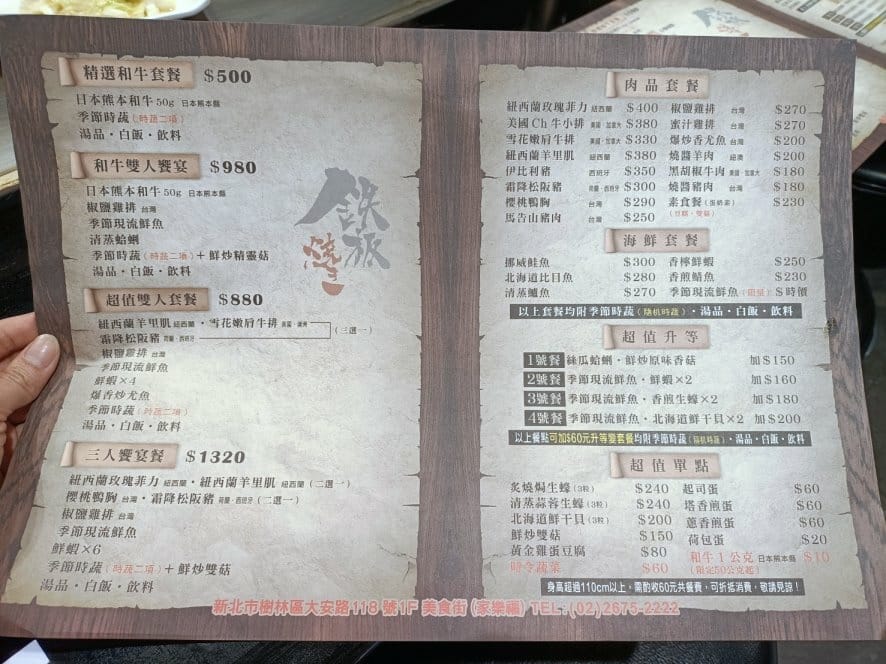 精選和牛套餐 $500
日本熊本和牛50g 日本熊本縣
季節時蔬(時蔬二項)
湯品·白飯·飲料
和牛雙人饗宴 $980
日本熊本和牛50g 日本熊本縣
椒鹽雞排 台灣
季節現流鮮魚
清蒸蛤蜊
季節時蔬(時蔬二項)+鮮炒精靈菇
湯品·白飯·飲料
超值雙人套餐 $880
紐西蘭羊里肌 紐西蘭·雪花嫩肩牛排 美國·澳洲
霜降松阪豬 荷蘭·西班牙 (三選一)
椒鹽雞排 台灣
季節現流鮮魚
鮮蝦×4
爆香炒尤魚
季節時蔬(時蔬二項)
湯品·白飯·飲料
三人饗宴餐 $1320
紐西蘭玫瑰菲力 紐西蘭·紐西蘭羊里肌 紐西蘭(二選一)
櫻桃鴨胸 台灣·霜降松阪豬 荷蘭·西班牙(二選一)
椒鹽雞排 台灣
季節現流鮮魚
鮮蝦×6
季節時蔬(時蔬二項)+鮮炒雙菇
湯品·白飯·飲料
鉄板燒
肉品套餐
紐西蘭玫瑰菲力 紐西蘭 $400
美國Ch牛小排 美國·加拿大 $380
雪花嫩肩牛排 美國·加拿大 $330
紐西蘭羊里肌 紐西蘭 $380
伊比利豬 西班牙 $350
霜降松阪豬 荷蘭·西班牙 $300
櫻桃鴨胸 台灣 $290
馬告山豬肉 台灣 $250
椒鹽雞排 台灣 $270
蜜汁雞排 台灣 $270
爆炒香尤魚 台灣 $200
燒醬羊肉 紐澳 $200
黑胡椒牛肉 美國·加拿大 $180
燒醬豬肉 台灣 $180
素食餐(蛋奶素) $230
(豆腐·雙菇)
海鮮套餐
挪威鮭魚 $300
北海道比目魚 $280
清蒸鱸魚 $270
香檸鮮蝦 $250
香煎鯖魚 $230
季節現流鮮魚(限量) $時價
以上套餐均附季節時蔬(隨機時蔬)·湯品·白飯·飲料
超值升等
1號餐 絲瓜蛤蜊·鮮炒原味香菇 加$150
2號餐 季節現流鮮魚·鮮蝦×2 加$160
3號餐 季節現流鮮魚·香煎生蠔×2 加$180
4號餐 季節現流鮮魚·北海道鮮干貝×2 加$200
以上餐點可加$60元升等變套餐均附季節時蔬(隨機時蔬)·湯品·白飯·飲料
超值單點
炙燒焗生蠔(3粒) $240
清蒸蒜蓉生蠔(3粒) $240
北海道鮮干貝(3粒) $200
鮮炒雙菇 $150
黃金雞蛋豆腐 $80
時令蔬菜 $60
起司蛋 $60
塔香煎蛋 $60
蔥香煎蛋 $60
荷包蛋 $20
和牛1公克 日本熊本縣 $10
(限定50公克起)
身高超過110cm以上,需酌收60元共餐費,可折抵消費,敬請見諒!
新北市樹林區大安路118號1F 美食街(家樂福) TEL:(02)2675-2222